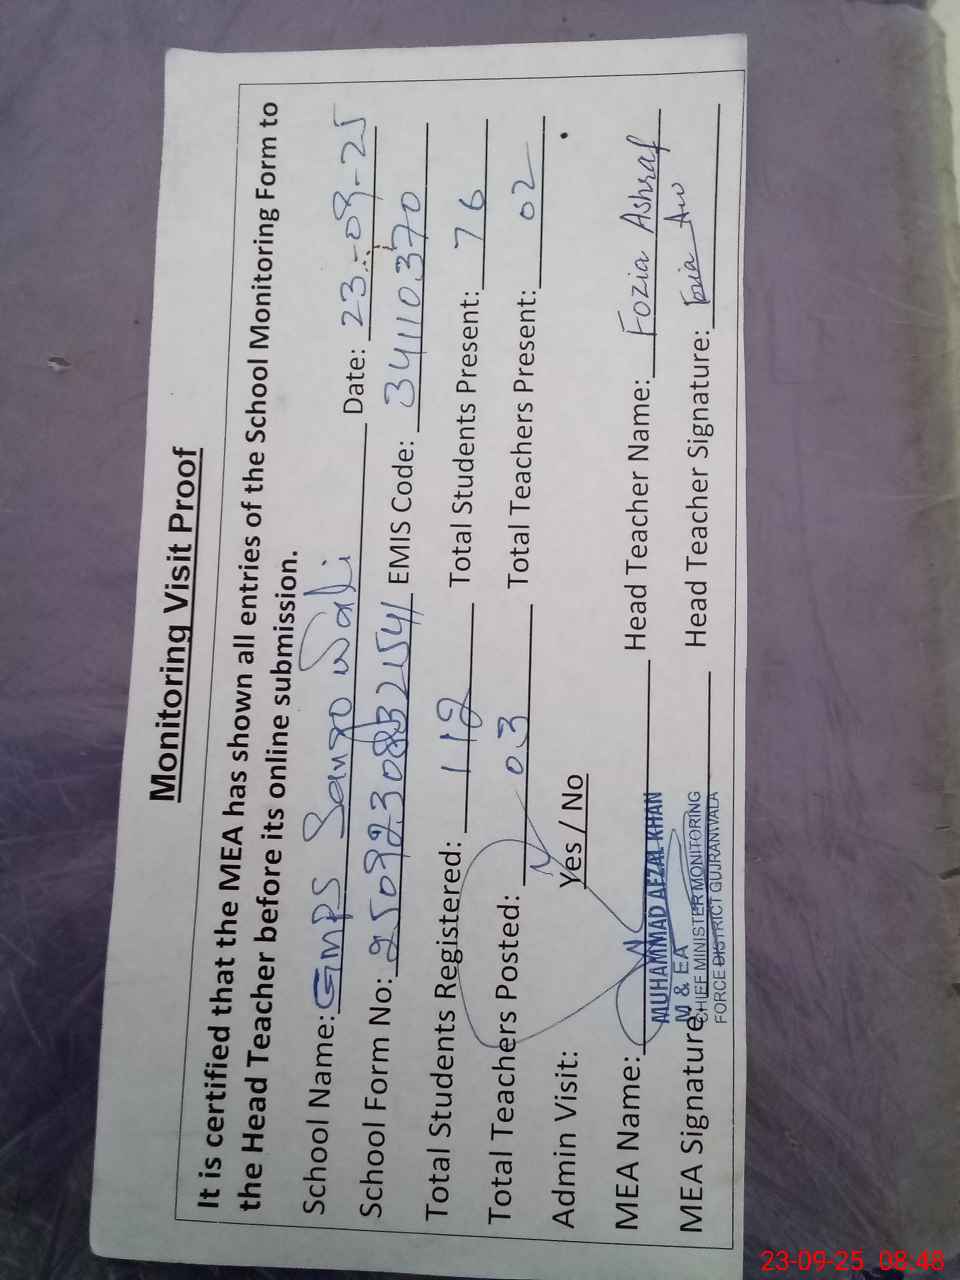 Monitoring Visit Proof
It is certified that the MEA has shown all entries of the School Monitoring Form to
the Head Teacher before its online submission.
School Name: GMPS Sango Wali Date: 23-09-25
School Form No: EMIS Code: 34110370
Total Students Registered: 112 Total Students Present: 76
Total Teachers Posted: 03 Total Teachers Present: 02
Admin Visit: Yes / No
MEA Name: Head Teacher Name: Fozia Ashraf
MUHAMMAD AFZAL KHAN
MEA Signature Head Teacher Signature:
M & EA
CHIEF MINISTER MONITORING
FORCE DISTRICT GUJRANWALA
23-09-25 08:48